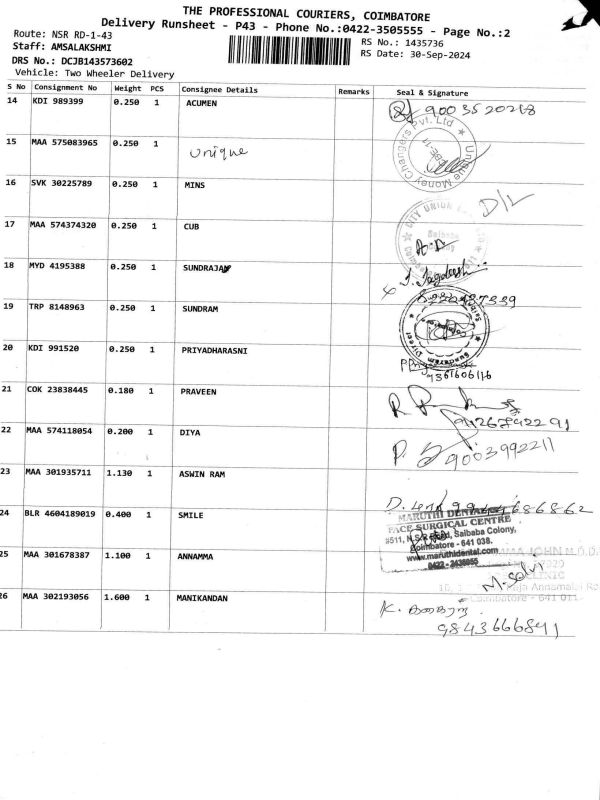 THE PROFESSIONAL COURIERS, COIMBATORE
Delivery Runsheet - P43 - Phone No.:0422-3505555 - Page No.:2
Route: NSR RD-1-43
RS No.: 1435736
Staff: AMSALAKSHMI
RS Date: 30-Sep-2024
DRS No.: DCJB143573602
Vehicle: Two Wheeler Delivery
S No Consignment No Weight PCS Consignee Details Remarks Seal & Signature
14 KDI 989399 0.250 1 ACUMEN
15 MAA 575083965 0.250 1 unique
Unique Money Changers Pvt. Ltd
16 SVK 30225789 0.250 1 MINS D/L
17 MAA 574374320 0.250 1 CUB
CITY UNION
18 MYD 4195388 0.250 1 SUNDRAJAN
19 TRP 8148963 0.250 1 SUNDRAM
20 KDI 991520 0.250 1 PRIYADHARASNI
21 COK 23838445 0.180 1 PRAVEEN
22 MAA 574118054 0.200 1 DIYA 9003992211
23 MAA 301935711 1.130 1 ASWIN RAM
24 BLR 4604189019 0.400 1 SMILE
MARUTHI DENTAL
FACE SURGICAL CENTRE
Saibaba Colony,
Coimbatore - 641 038.
www.maruthidental.com
25 MAA 301678387 1.100 1 ANNAMMA
M. Selvi
Coimbatore - 641 011
26 MAA 302193056 1.600 1 MANIKANDAN
9843666841